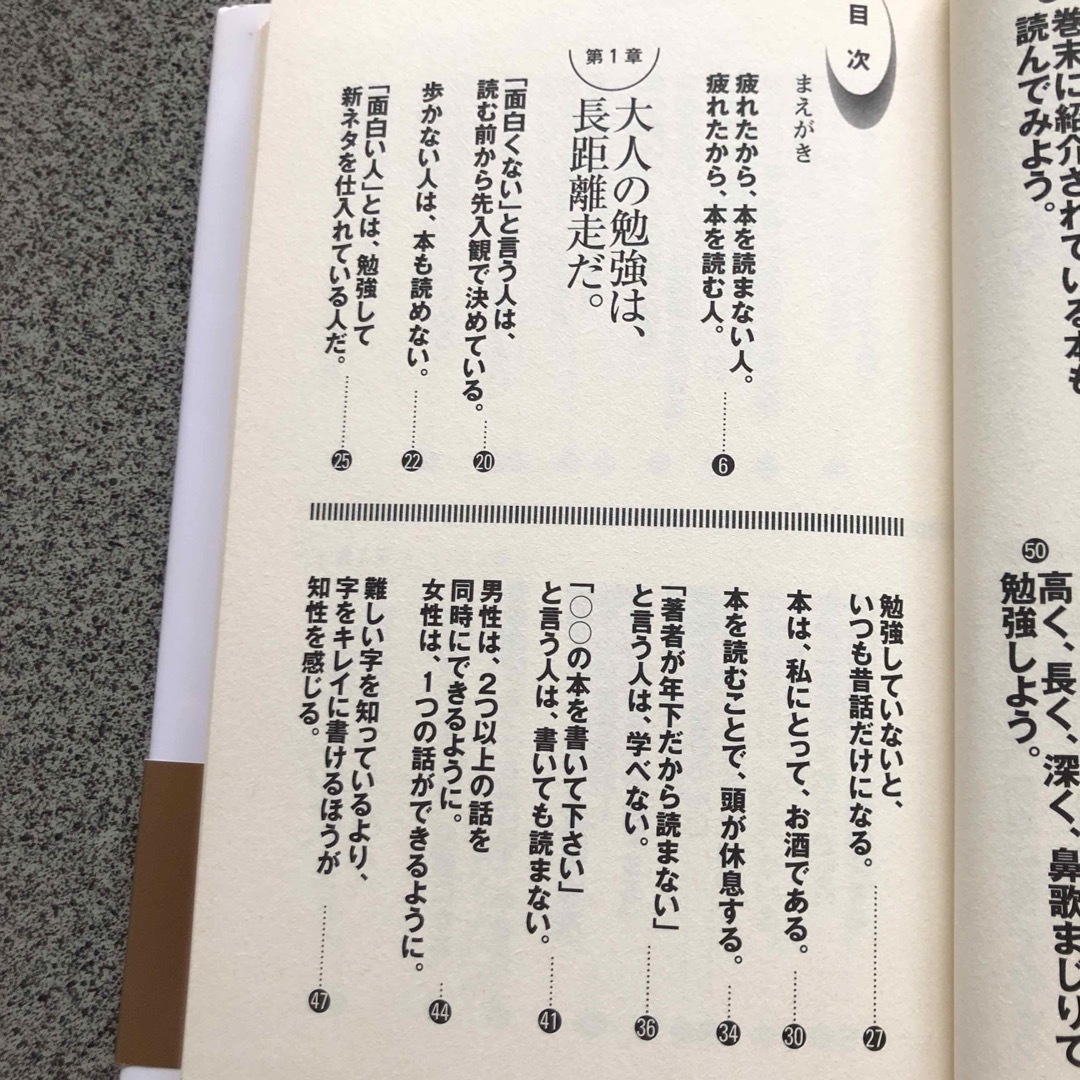 巻末に紹介されている本も
読んでみよう。
50
高く、長く、深く、鼻歌まじりで
勉強しよう。
目次
まえがき
疲れたから、本を読まない人。
疲れたから、本を読む人。……6
第1章
大人の勉強は、
長距離走だ。
「面白くない」と言う人は、
読む前から先入観で決めている。……20
歩かない人は、本も読めない。……22
「面白い人」とは、勉強して
新ネタを仕入れている人だ。……25
勉強していないと、
いつも昔話だけになる。……27
本は、私にとって、お酒である。……30
本を読むことで、頭が休息する。……34
「著者が年下だから読まない」
と言う人は、学べない。……36
「○○の本を書いて下さい」
と言う人は、書いても読まない。……41
男性は、2つ以上の話を
同時にできるように。
女性は、1つの話ができるように。……44
難しい字を知っているより、
字をキレイに書けるほうが
知性を感じる。……47